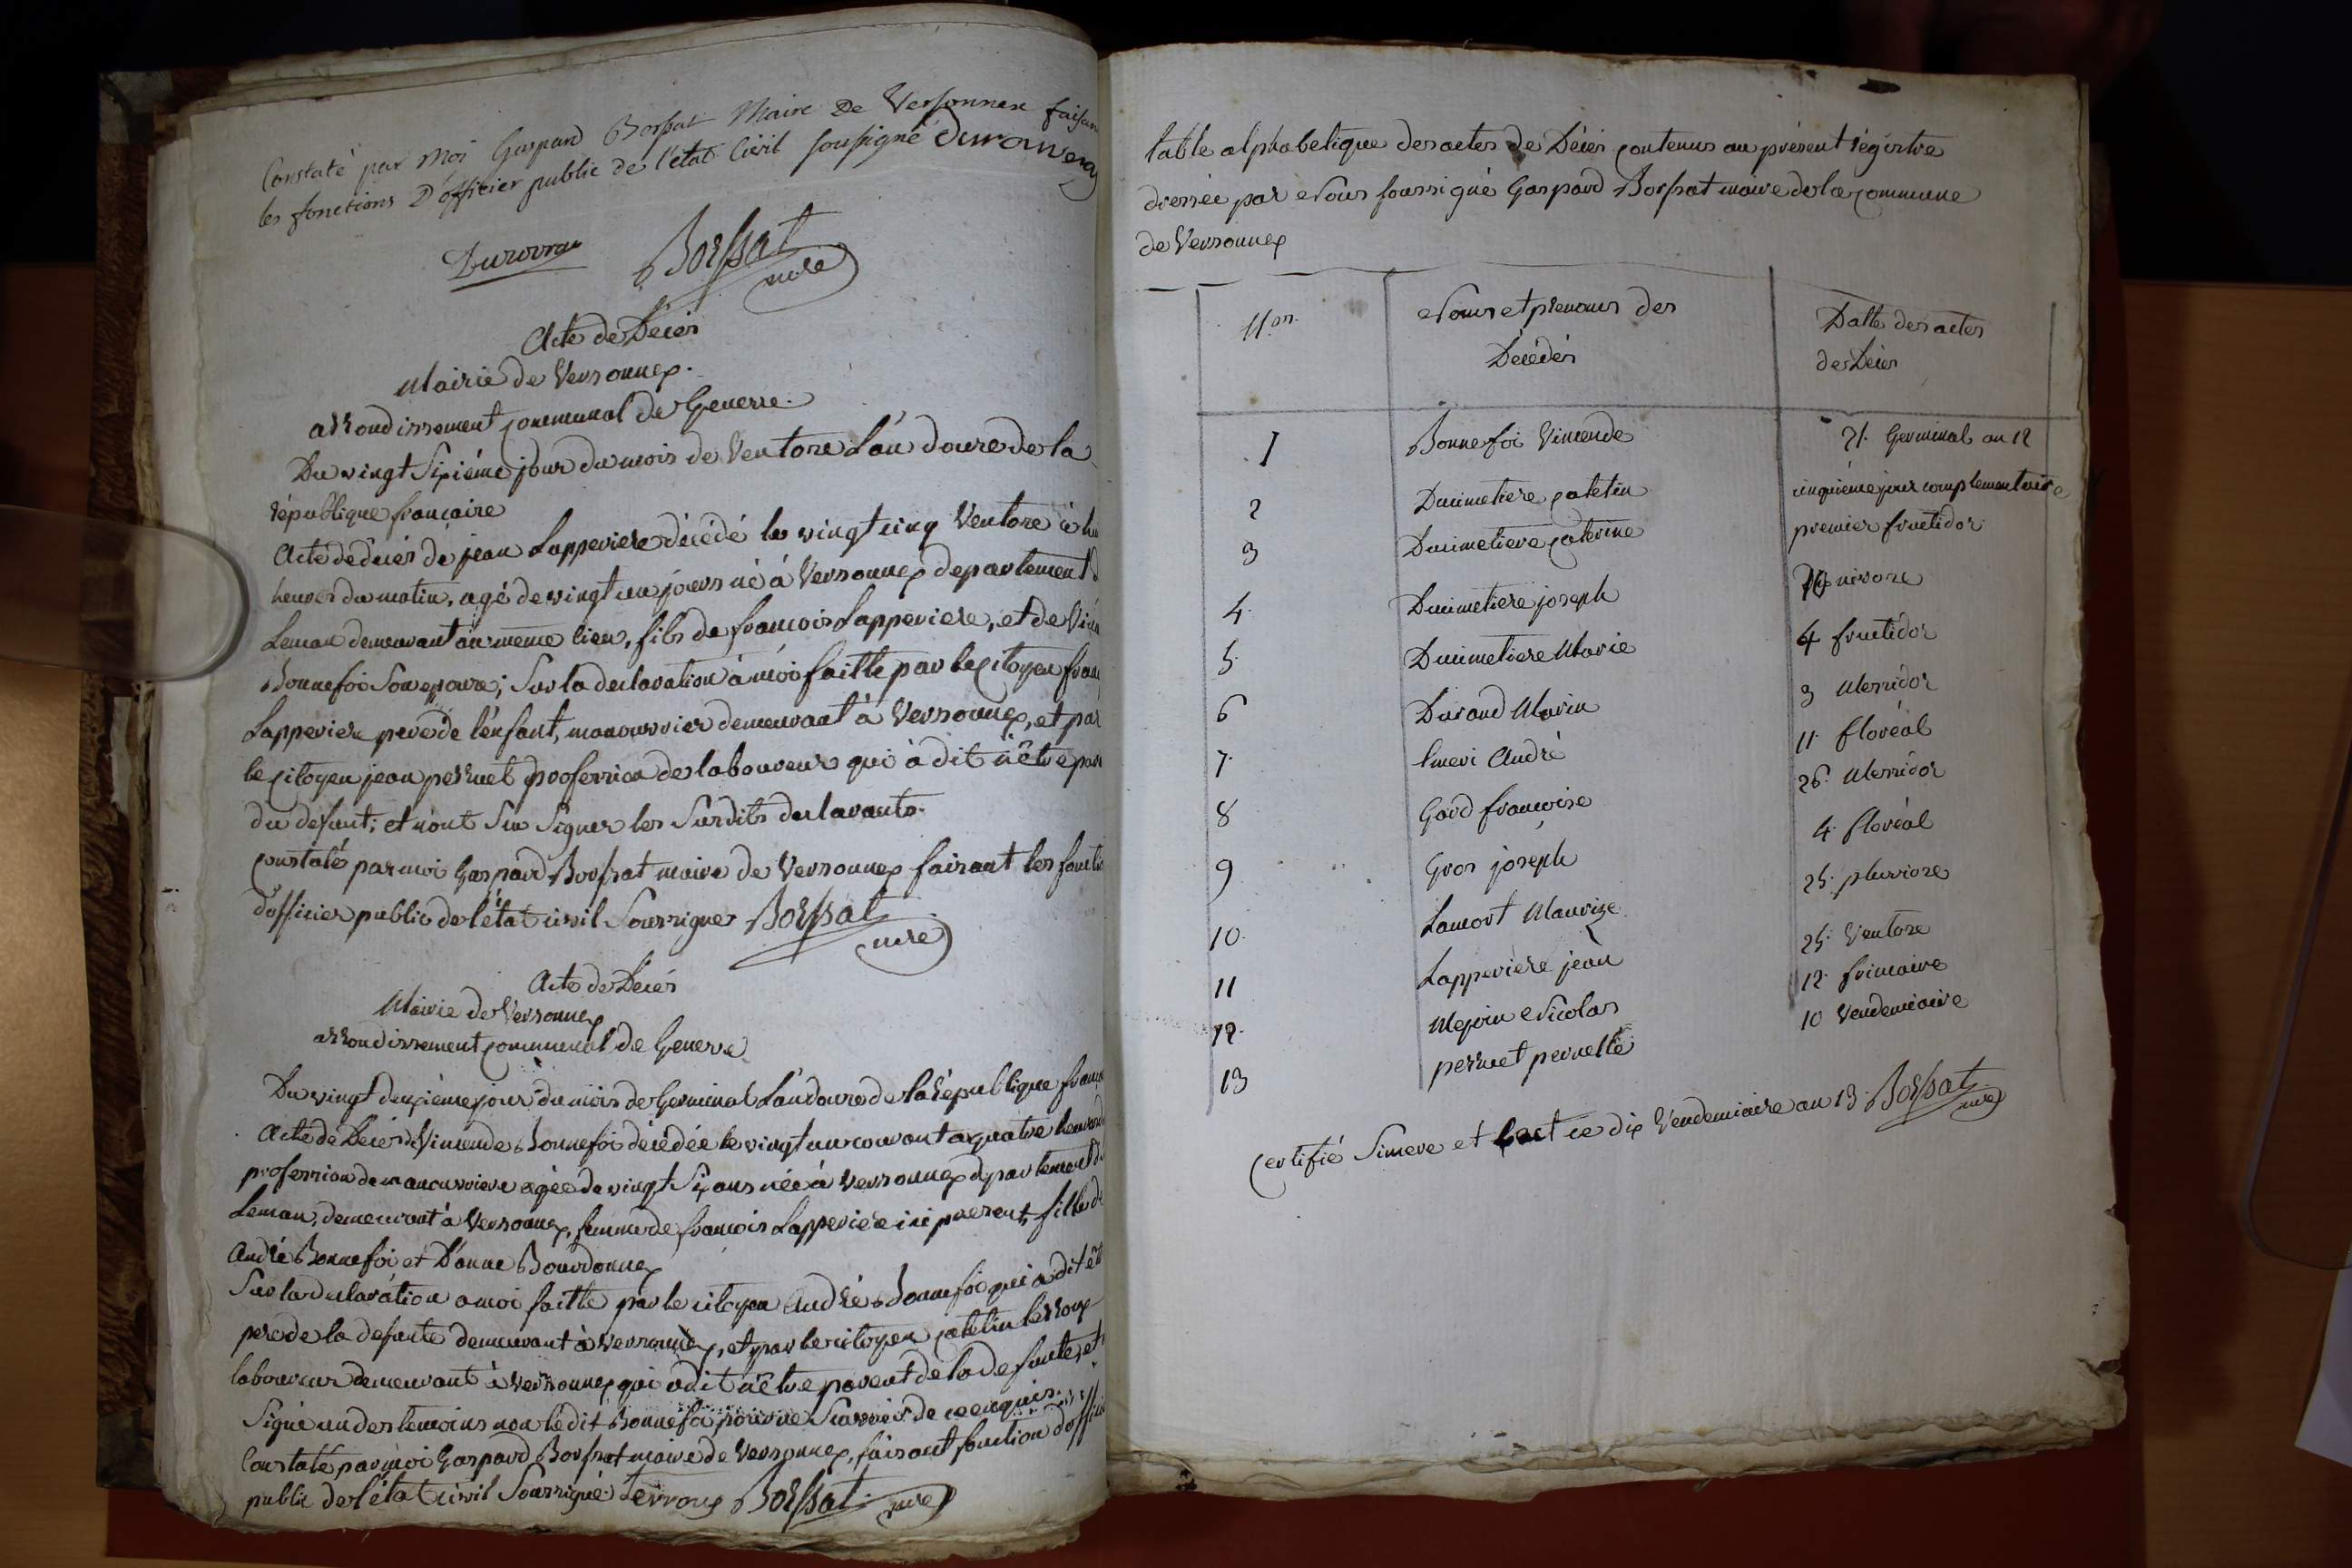 Constaté par Moi Gaspard Borssat Maire De Versonnex faisan
les fonctions D'officier public de l'état Civil sousigné
Borssat
mre
Acte de Décès
Mairie de Versonnex.
arrondissement communal de Geneve.
Du vingt Sixiéme jour du mois de Ventose L'an douze de la
république francaise
Acte de décès de jean Lapperiere décédé le vingt cinq Ventose à hu
heures du matin, agé de vingt un jours né à Versonnex departement d
Leman demeurant au même lieu, fils de francois Lapperiere, et de Vin
Bonnefoi Son epouse; Sur la declaration à moi faitte par le citoyen fran
Lapperiere pere de l'enfant, manouvrier demeurant à Versonnex, et par
le citoyen jean perruet profession de laboureur qui à dit n'être par
du defunt; et n'ont Su Signer les Surdits declarants.
Constaté par moi Gaspard Borssat maire de Versonnex faisant les foncti
d'officier public de l'état civil Soussigner Borssat
mre
Acte de Décés
Mairie de Versonnex
arrondissement communal de Geneve
Du vingt deuxiéme jour du mois de Germinal L'an douze de la république franc
Acte de Décès de Vincende Bonnefoi décédée le vingt un courant a quatre heures
profession de manouvriere agée de vingt Six ans née à Versonnex departement du
Leman, demeurant à Versonnex, femme de francois Lapperiere ici present, fille de
André Bonnefoi et D'anne Bourdonnex
Sur la declaration a moi faitte par le citoyen André Bonnefoi qui a dit êt
pere de la defunte demeurant à Versonnex, et par le citoyen catelin Lerroux
laboureur demeurant à Versonnex qui a dit n'être parent de la defunte, et
Signé un des temoins non ledit Bonnefoi pour ne Scavoir de ce enquis.
Constaté par moi Gaspard Borssat maire de Versonnex, faisant fonction d'offici
public de l'état civil Soussigné. Lerroux Borssat mre
table alphabetique des actes de Décès contenus au présent régistre
dressée par Nous soussigné Gaspard Borssat maire de la commune
de Versonnex
Nos. Noms et prenoms des Décédés Datte des actes de Décès
1 Bonnefoi Vincende 21. Germinal an 12
2 Ducimetiere catelin cinquiéme jour complementaire
3 Ducimetiere caterine premier fructidor
4. Ducimetiere joseph nivose
5. Ducimetiere Marie 4 fructidor
6 Durand Marin 3 Messidor
7. Emeri André 11. floréal
8 Gard francoise 26. Messidor
9 Gros joseph 4. floréal
10. Lamort Maurize 25. pluviose
11 Lapperiere jean 25. Ventose
12. Mejoin Nicolas 12. frimaire
13 perruet pernette 10 Vendemiaire
Certifié Sincere et ce dix Vendemiaire an 13. Borssat
mre